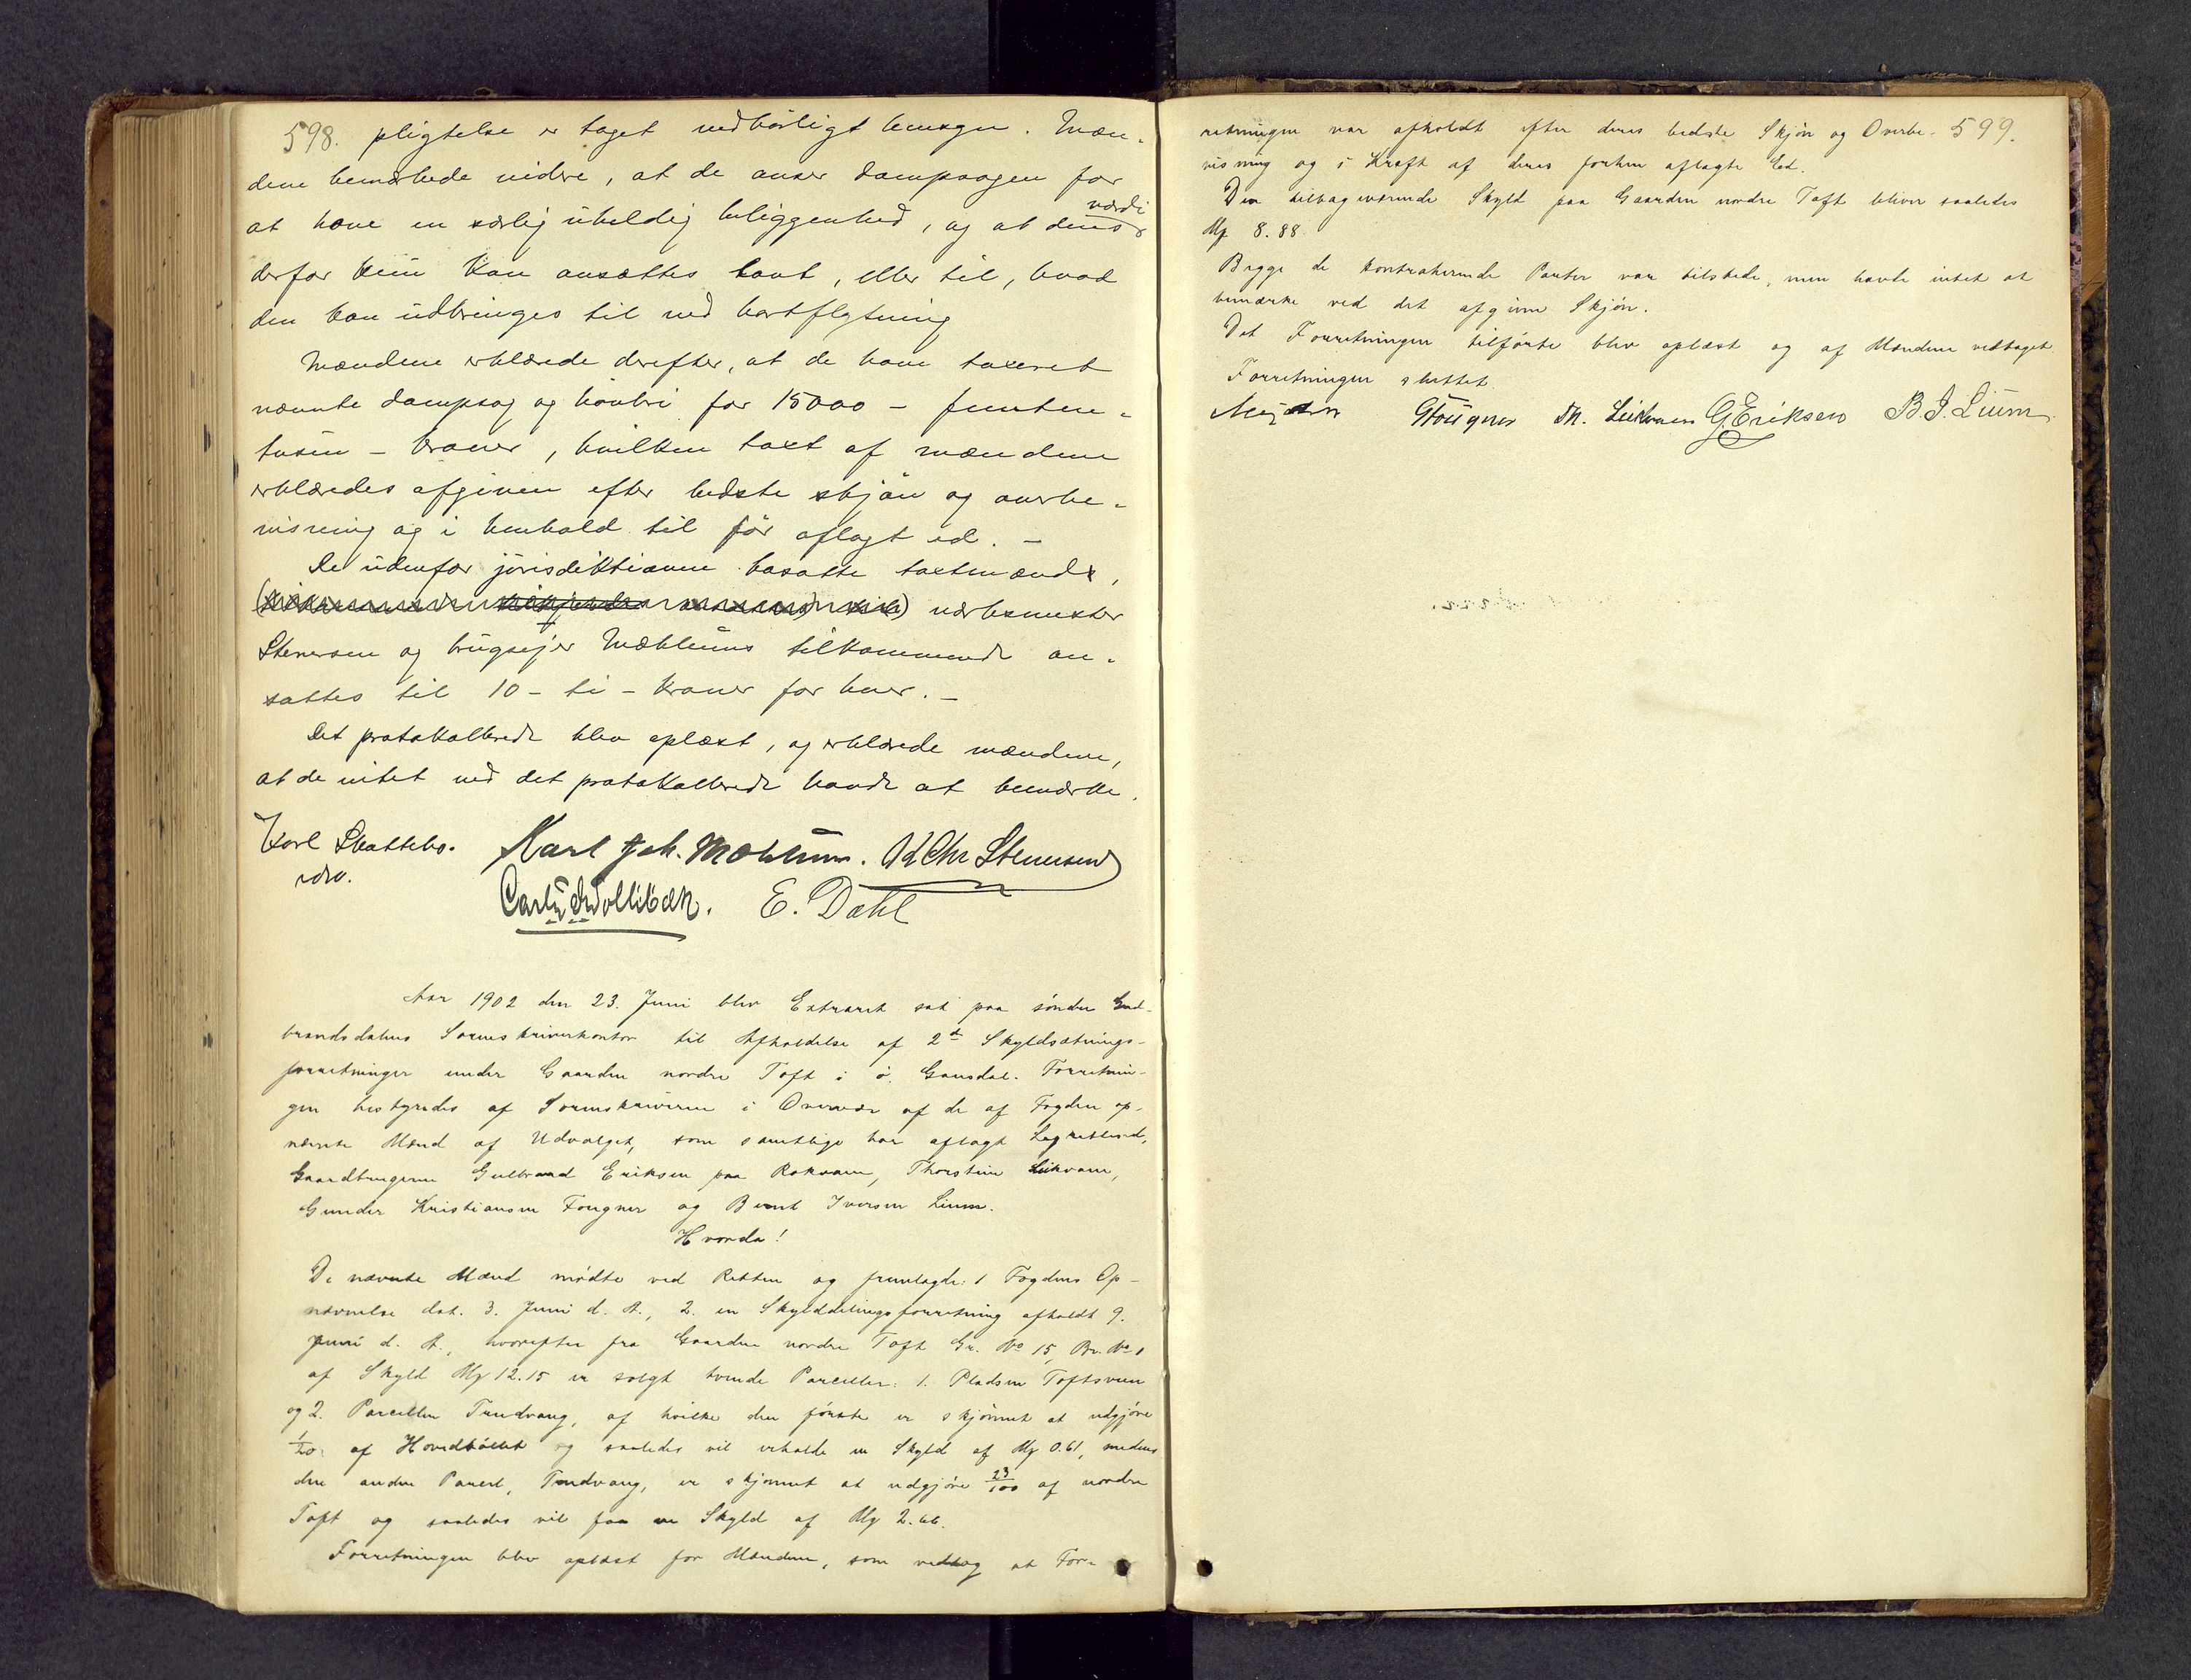 598. pligtelse er taget nedbørligt hensyn. Mæn-
dene bemærkede videre, at de anser dampsagen for
at have en særlig uheldig beliggenhed, og at dens værdi
derfor kun kan ansættes lavt, eller til, hvad
den kan udbringes til ved bortflytning
Mændene erklærede derefter, at de have taxeret
nævnte dampsag og høvleri for 15000 – femten-
tusin – kroner, hvilken taxt af mændene
erklæredes afgiven efter bedste skjøn og overbe-
visning og i henhold til før aflagt ed. –
De udenfor jurisdiktionen bosatte taxtmænds,
værksmester
Stenersen og brugsejer Mæhlums tilkommende an-
sattes til 10 – ti – kroner for hver. –
Det protokollerede blev oplæst, og erklærede mændene,
at de intet ved det protokollerede havde at bemærke.
Karl Skattebo. Karl Joh. Mæhlum. O Chr Stenersen
edsv.
Carl Wollebæk. E. Dahl
Aar 1902 den 23. Juni blev Extraret sat paa søndre Gud-
brandsdalens Sorenskriverkontor til Afholdelse af 2de Skyldsætnings-
forretninger under Gaarden nordre Toft i ø. Gausdal. Forretnin-
gen bestyredes af Sorenskriveren i Overvær af de af Fogden op-
nævnte Mænd af Udvalget, som samtlige har aflagt Lagretteed,
Gaardbrugerne Gulbrand Eriksen paa Rokvam, Thorstein Leikvam,
Gunder Kristiansen Fougner og Bernt Iversen Lium.
Hvorda!
De nævnte Mænd mødte ved Retten og fremlagde: 1 Fogdens Op-
nævnelse dat. 3. Juni d. A., 2. en Skylddelingsforretning afholdt 9.
Juni d. A., hvorefter fra Gaarden nordre Toft Gr. No 15, Br. No 1
af Skyld Mk 12.15 er solgt tvende Parceller: 1. Pladsen Toftsveen
og 2. Parcellen Trudvang, af hvilke den første er skjønnet at udgjøre
1/20 af Hovedbøllet og saaledes vil erholde en Skyld af Mk 0.61, medens
den anden Parcel, Trudvang, er skjønnet at udgjøre 23/100 af nordre
Toft og saaledes vil faa en Skyld af Mk 2.66.
Forretningen blev oplæst for Mændene, som vedtog at For-
retningen var afholdt efter deres bedste Skjøn og Overbe- 599.
visning og i Kraft af deres forhen aflagte Ed.
Den tilbageværende Skyld paa Gaarden nordre Toft bliver saaledes
Mk 8.88
Begge de kontraherende Parter var tilstede, men havde intet at
bemærke ved det afgivne Skjøn.
Det Forretningen tilførte blev oplæst og af Mændene vedtaget.
Forretningen sluttet.
GFougner Th. Leikvam G. Eriksen B. I. Lium